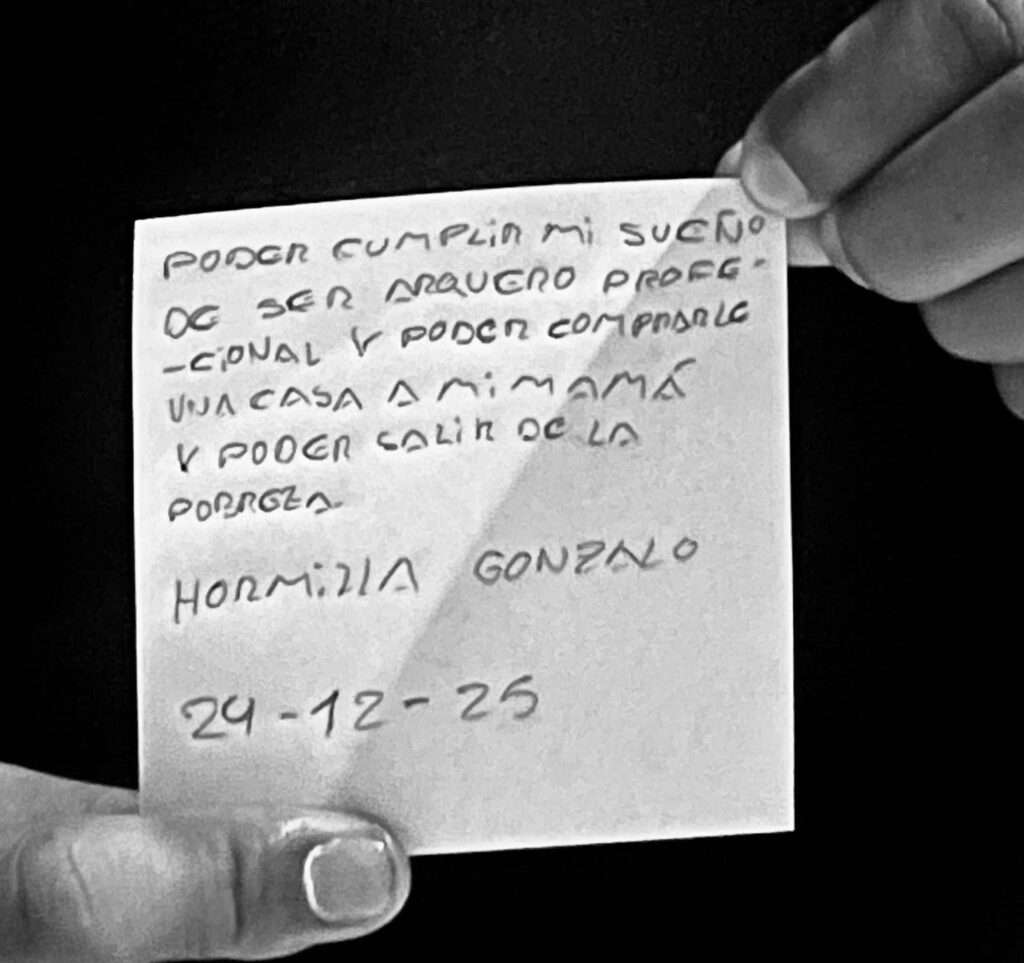 PODER CUMPLIR MI SUEÑO
DE SER ARQUERO PROFE-
-CIONAL Y PODER COMPRARLE
UNA CASA A MI MAMÁ
Y PODER SALIR DE LA
POBREZA.
HORMIZIA GONZALO
24-12-25